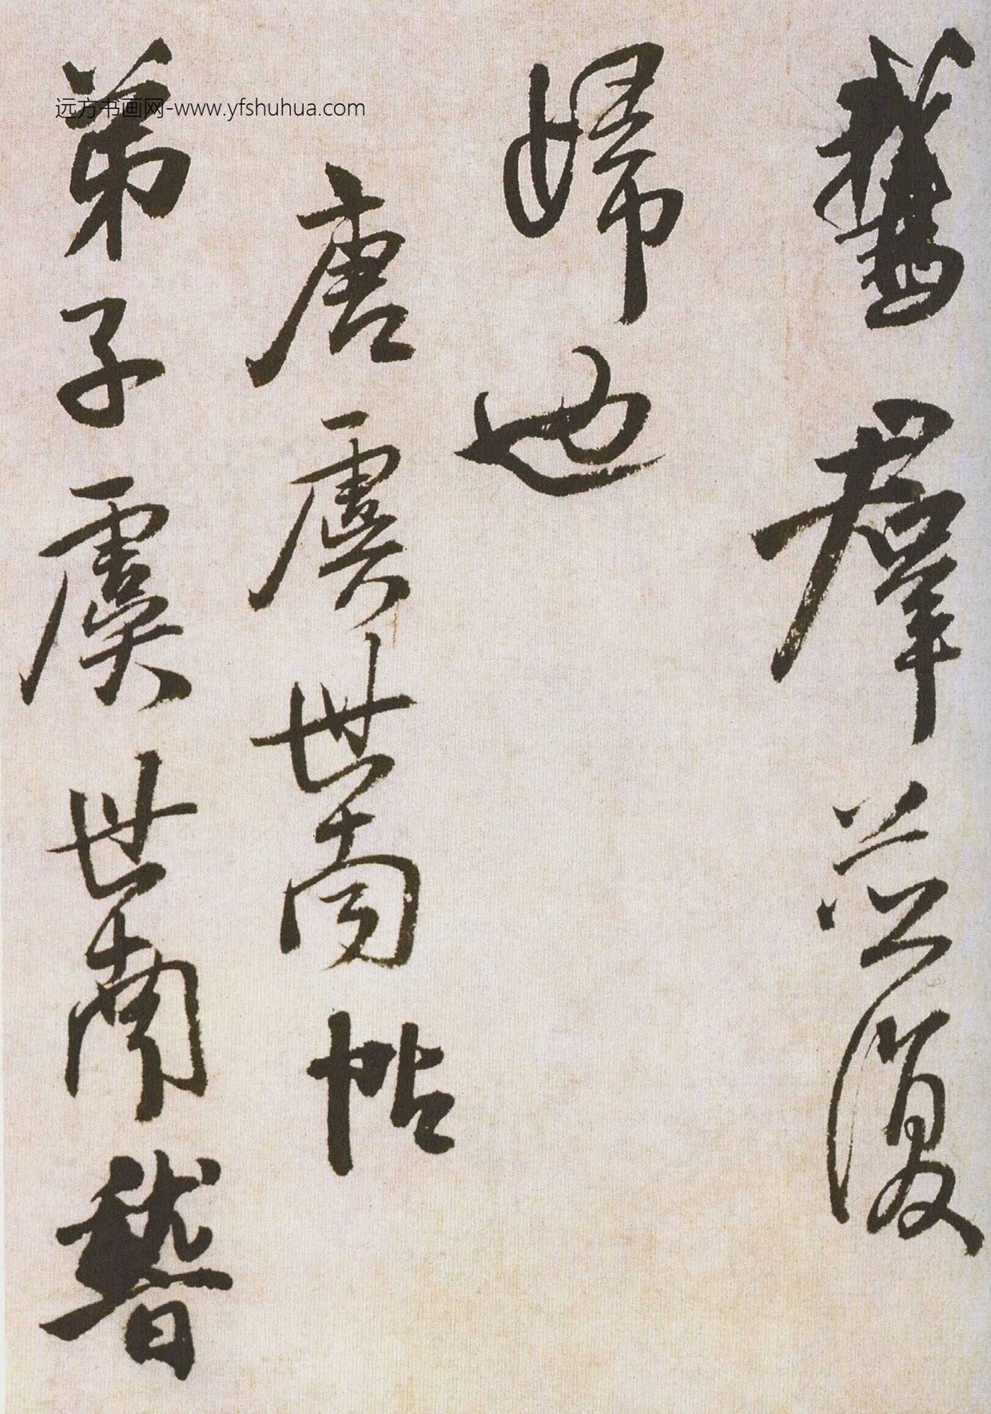 鵞群並復
歸也
唐虞世南帖
弟子虞世南稽
远方书画网-www.yfshuhua.com